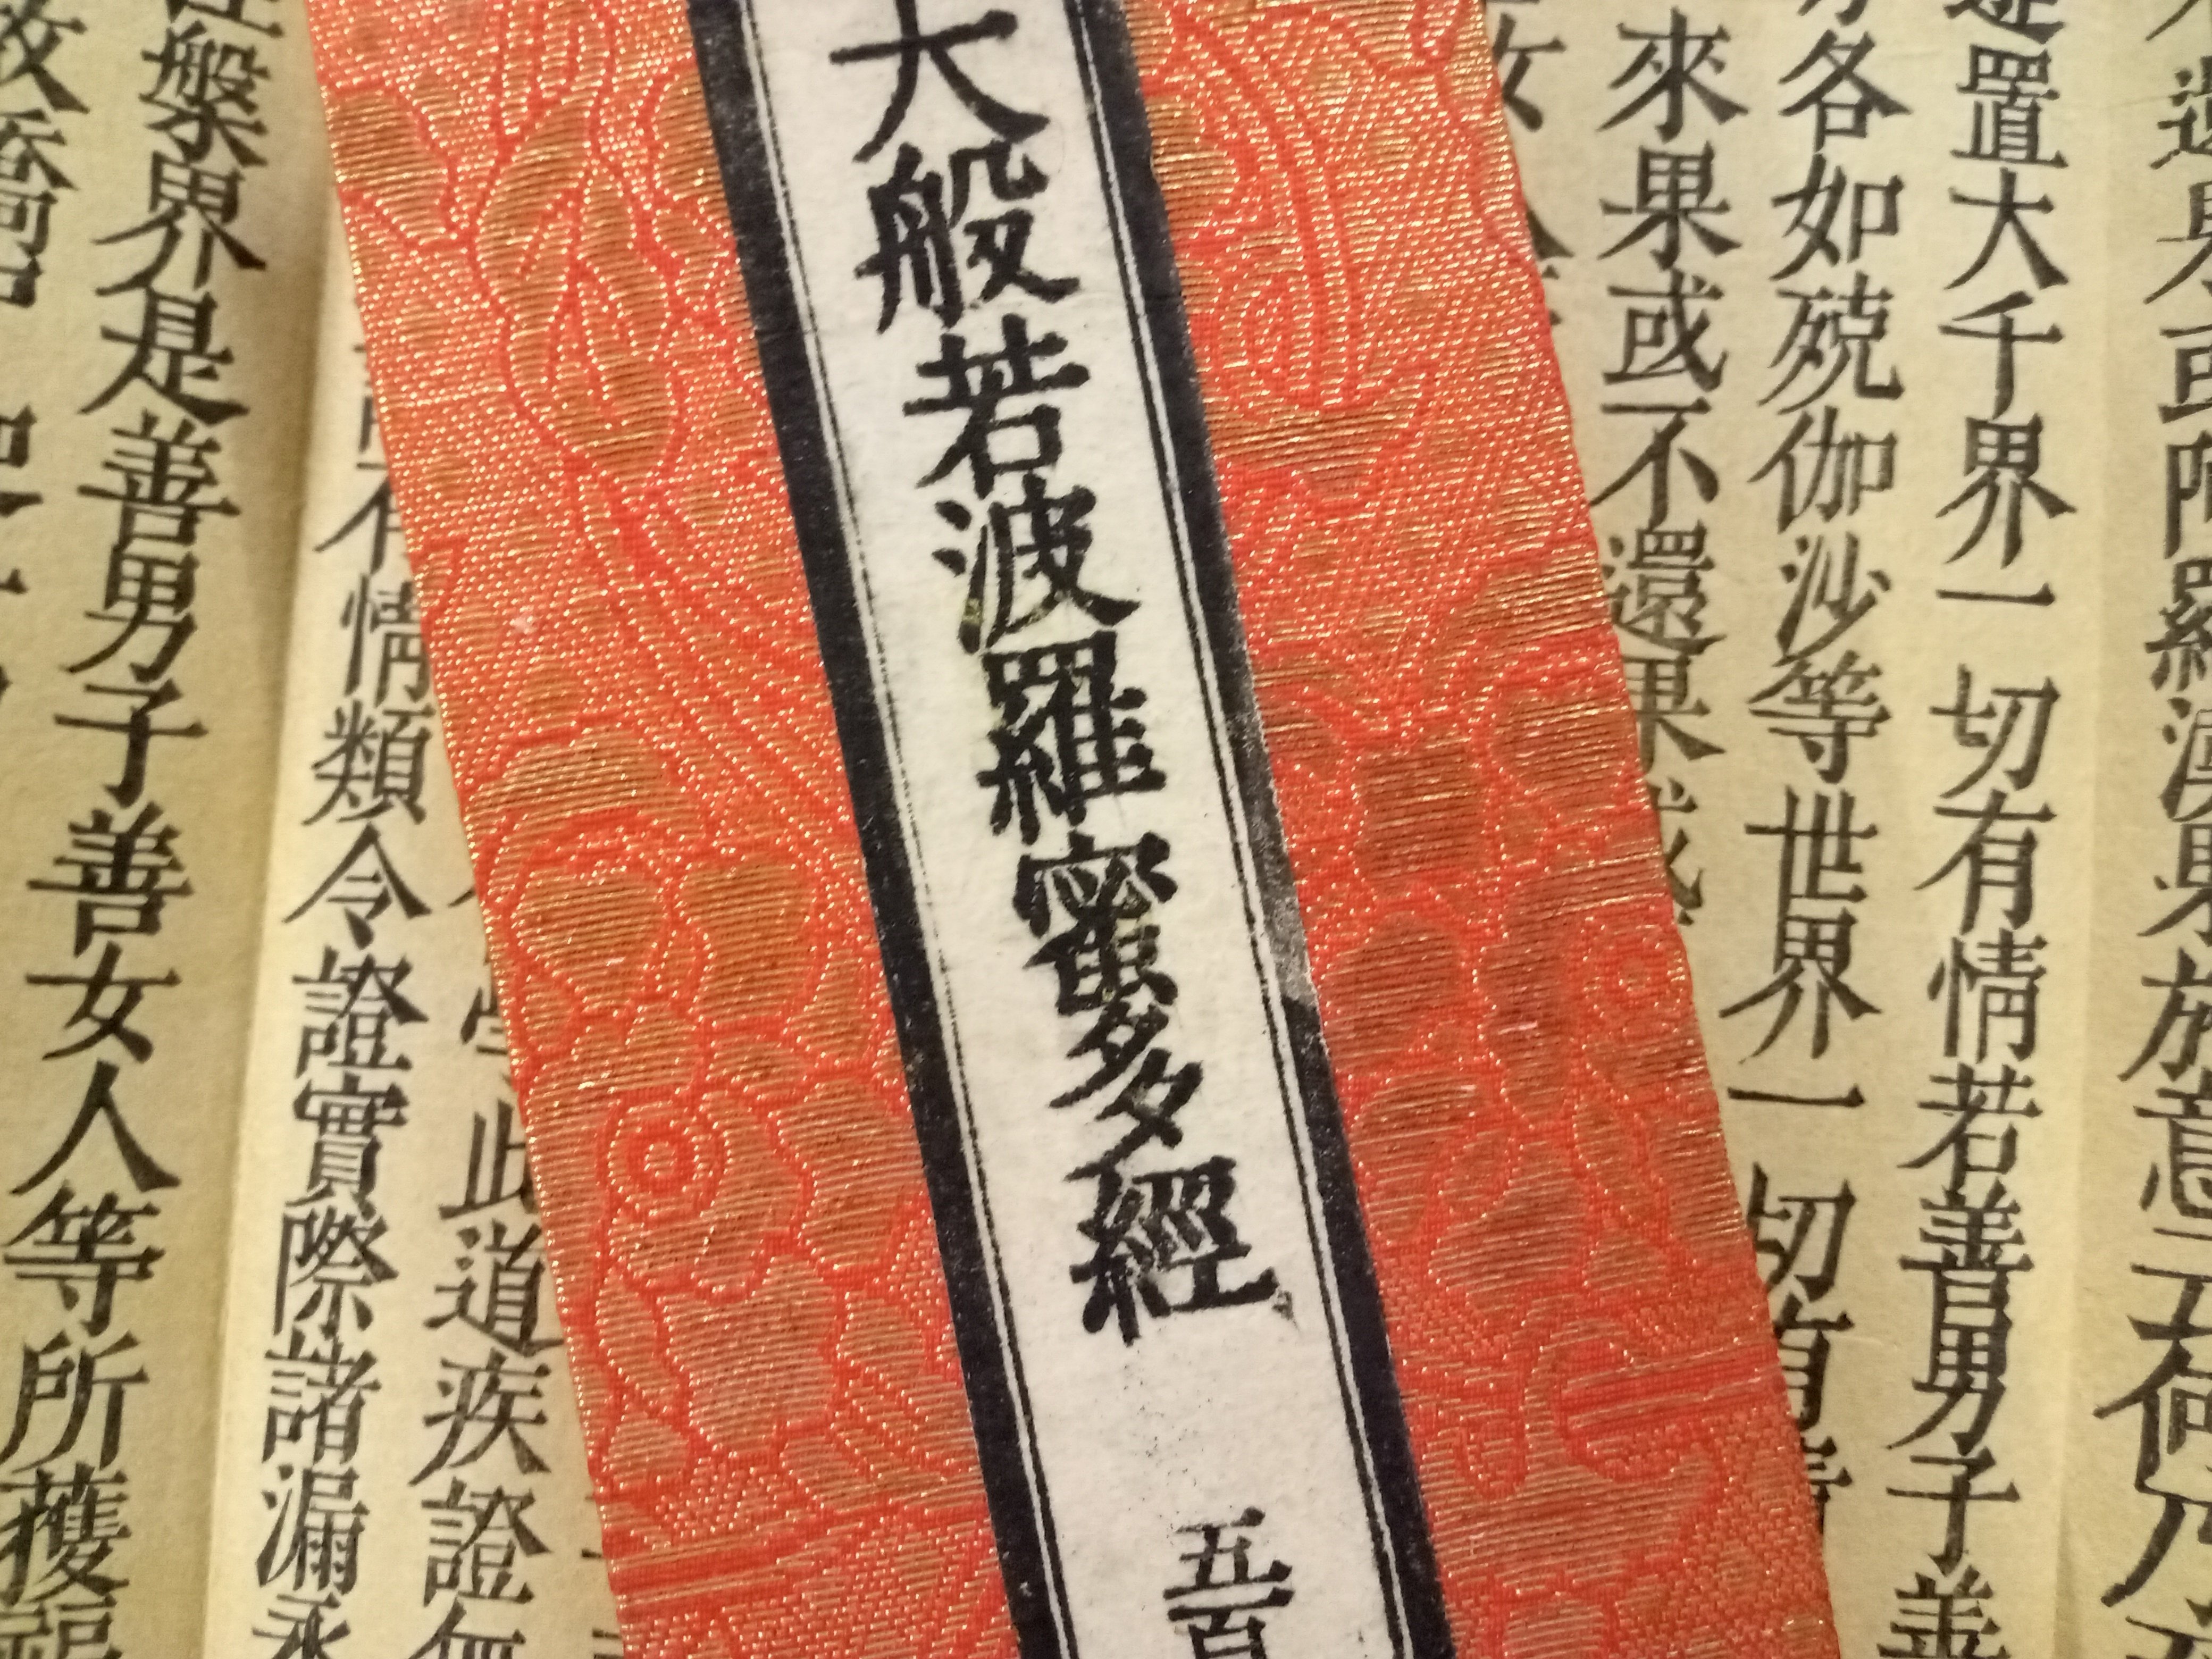 或阿羅漢果於意云何
置大千界一切有情若善男子善
各如殑伽沙等世界一切有
來果或不還果或
大般若波羅蜜多經
五百
此道疾證無
有情類令證實際諸漏永
槃界是善男子善女人等所獲福